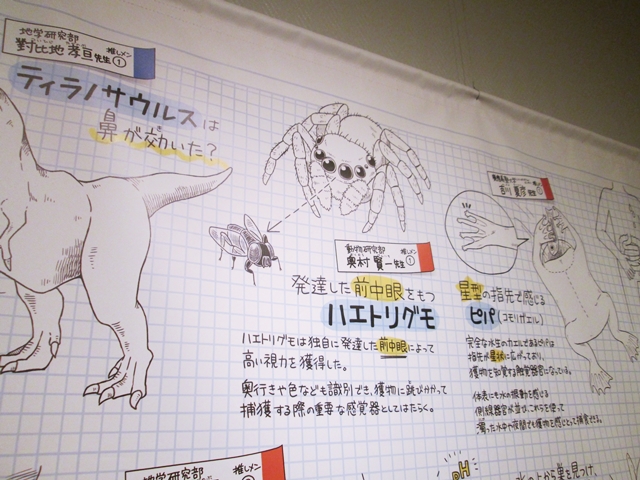 地学研究部 推しメン
對比地 孝亘先生①
ティラノサウルスは
鼻が効いた?
動物研究部 推しメン
奥村 賢一先生①
発達した前中眼をもつ
ハエトリグモ
ハエトリグモは独自に発達した前中眼によって
高い視力を獲得した。
奥行きや色なども識別でき、獲物に跳びかかって
捕獲する際の重要な感覚器としてはたらく。
星型の指先で感じる
ピパ(コモリガエル)
完全な水生のカエルであるピパは
指先が星状に広がっており、
獲物を知覚する触覚器官になっている。
体表にも水の振動を感じる
側線器官が並び、これらを使って
濁った水中や夜間でも獲物を感じとって捕食できる。
地学研究部 推しメン
pH
水の上から巣を見つけ、